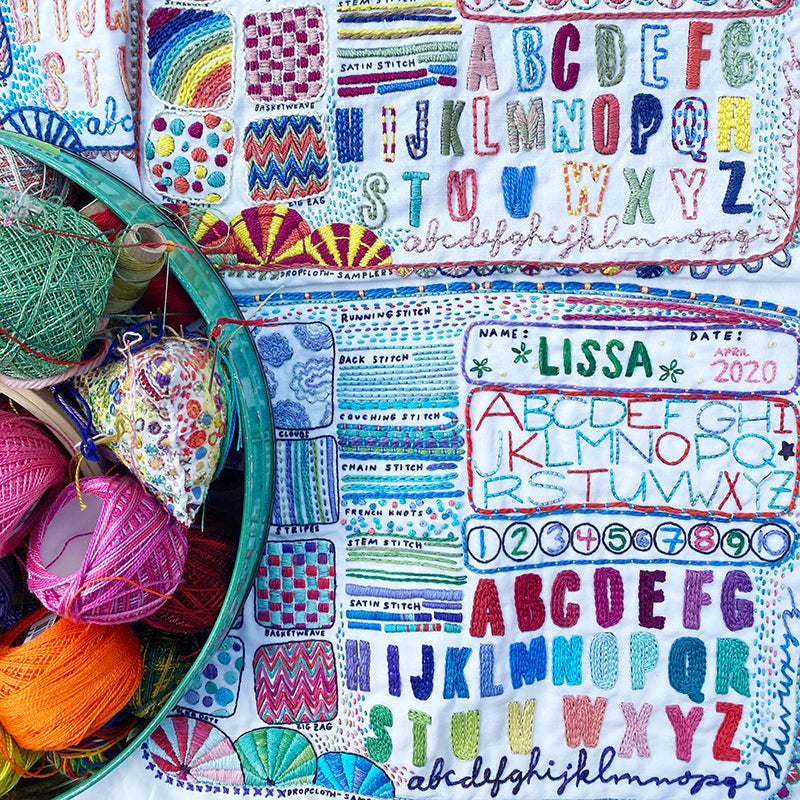 STEM STITCH
SATIN STITCH
BASKETWEAVE
ZIG ZAG
ABCDEFG
HIJKLMNOPQR
STUVWXYZ
abcdefghijklmnopqrstuvwxyz
DROPCLOTH-SAMPLERS
abc
RUNNING STITCH
BACK STITCH
COUCHING STITCH
CHAIN STITCH
FRENCH KNOTS
STEM STITCH
SATIN STITCH
CLOUDS
STRIPES
BASKETWEAVE
ZIG ZAG
NAME: LISSA
DATE: APRIL
2020
ABCDEFGHI
JKLMNOPQ
RSTUVWXYZ
1 2 3 4 5 6 7 8 9 10
ABCDEFG
HIJKLMNOPQR
STUVWXYZ
abcdefghijklmnopqrstuvwxyz
DROPCLOTH-SAMPLERS